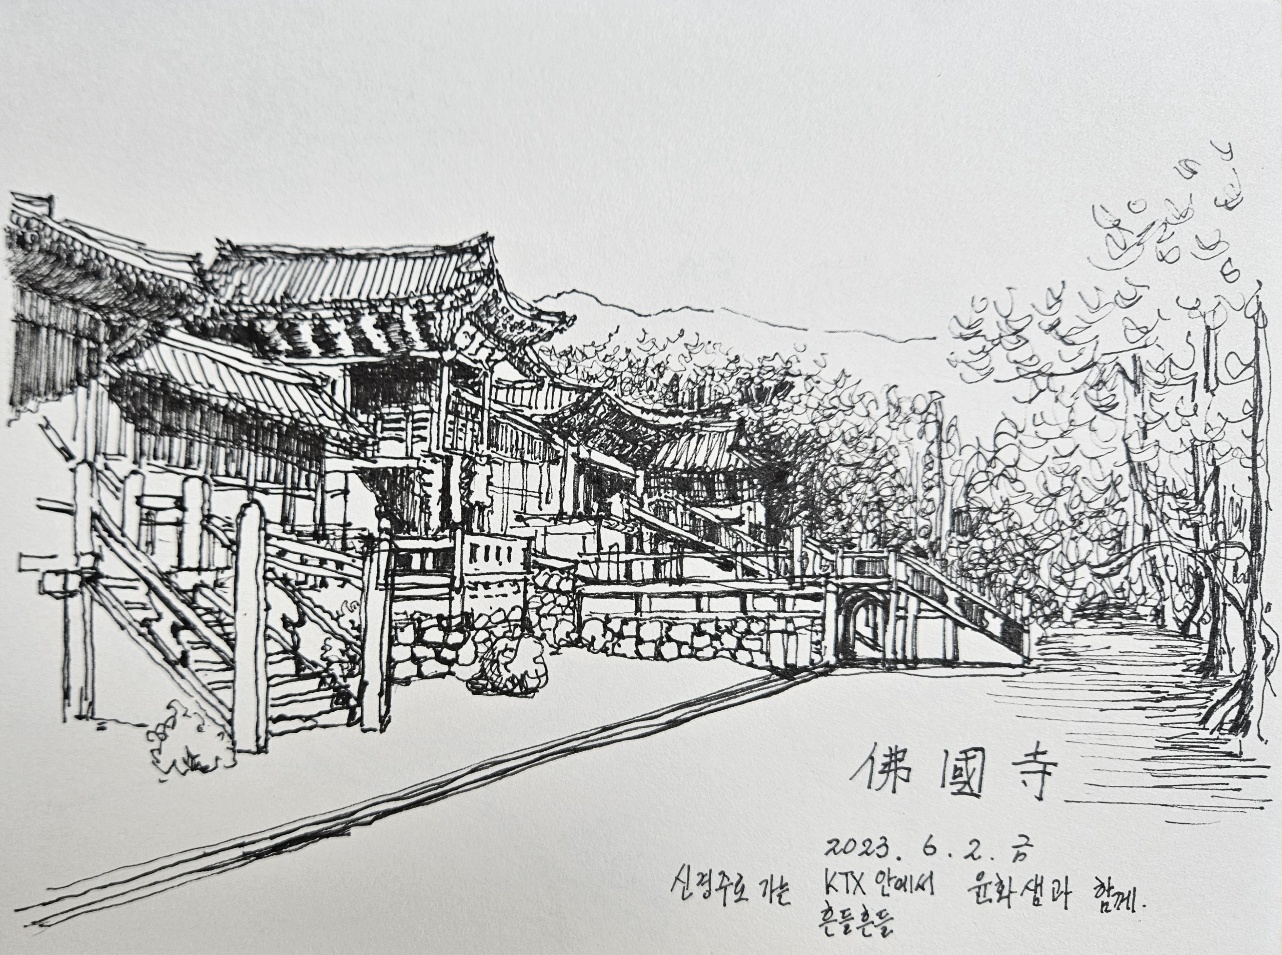 佛國寺
2023. 6. 2. 금
신경주로 가는 KTX 안에서 윤화샘과 함께.
흔들흔들